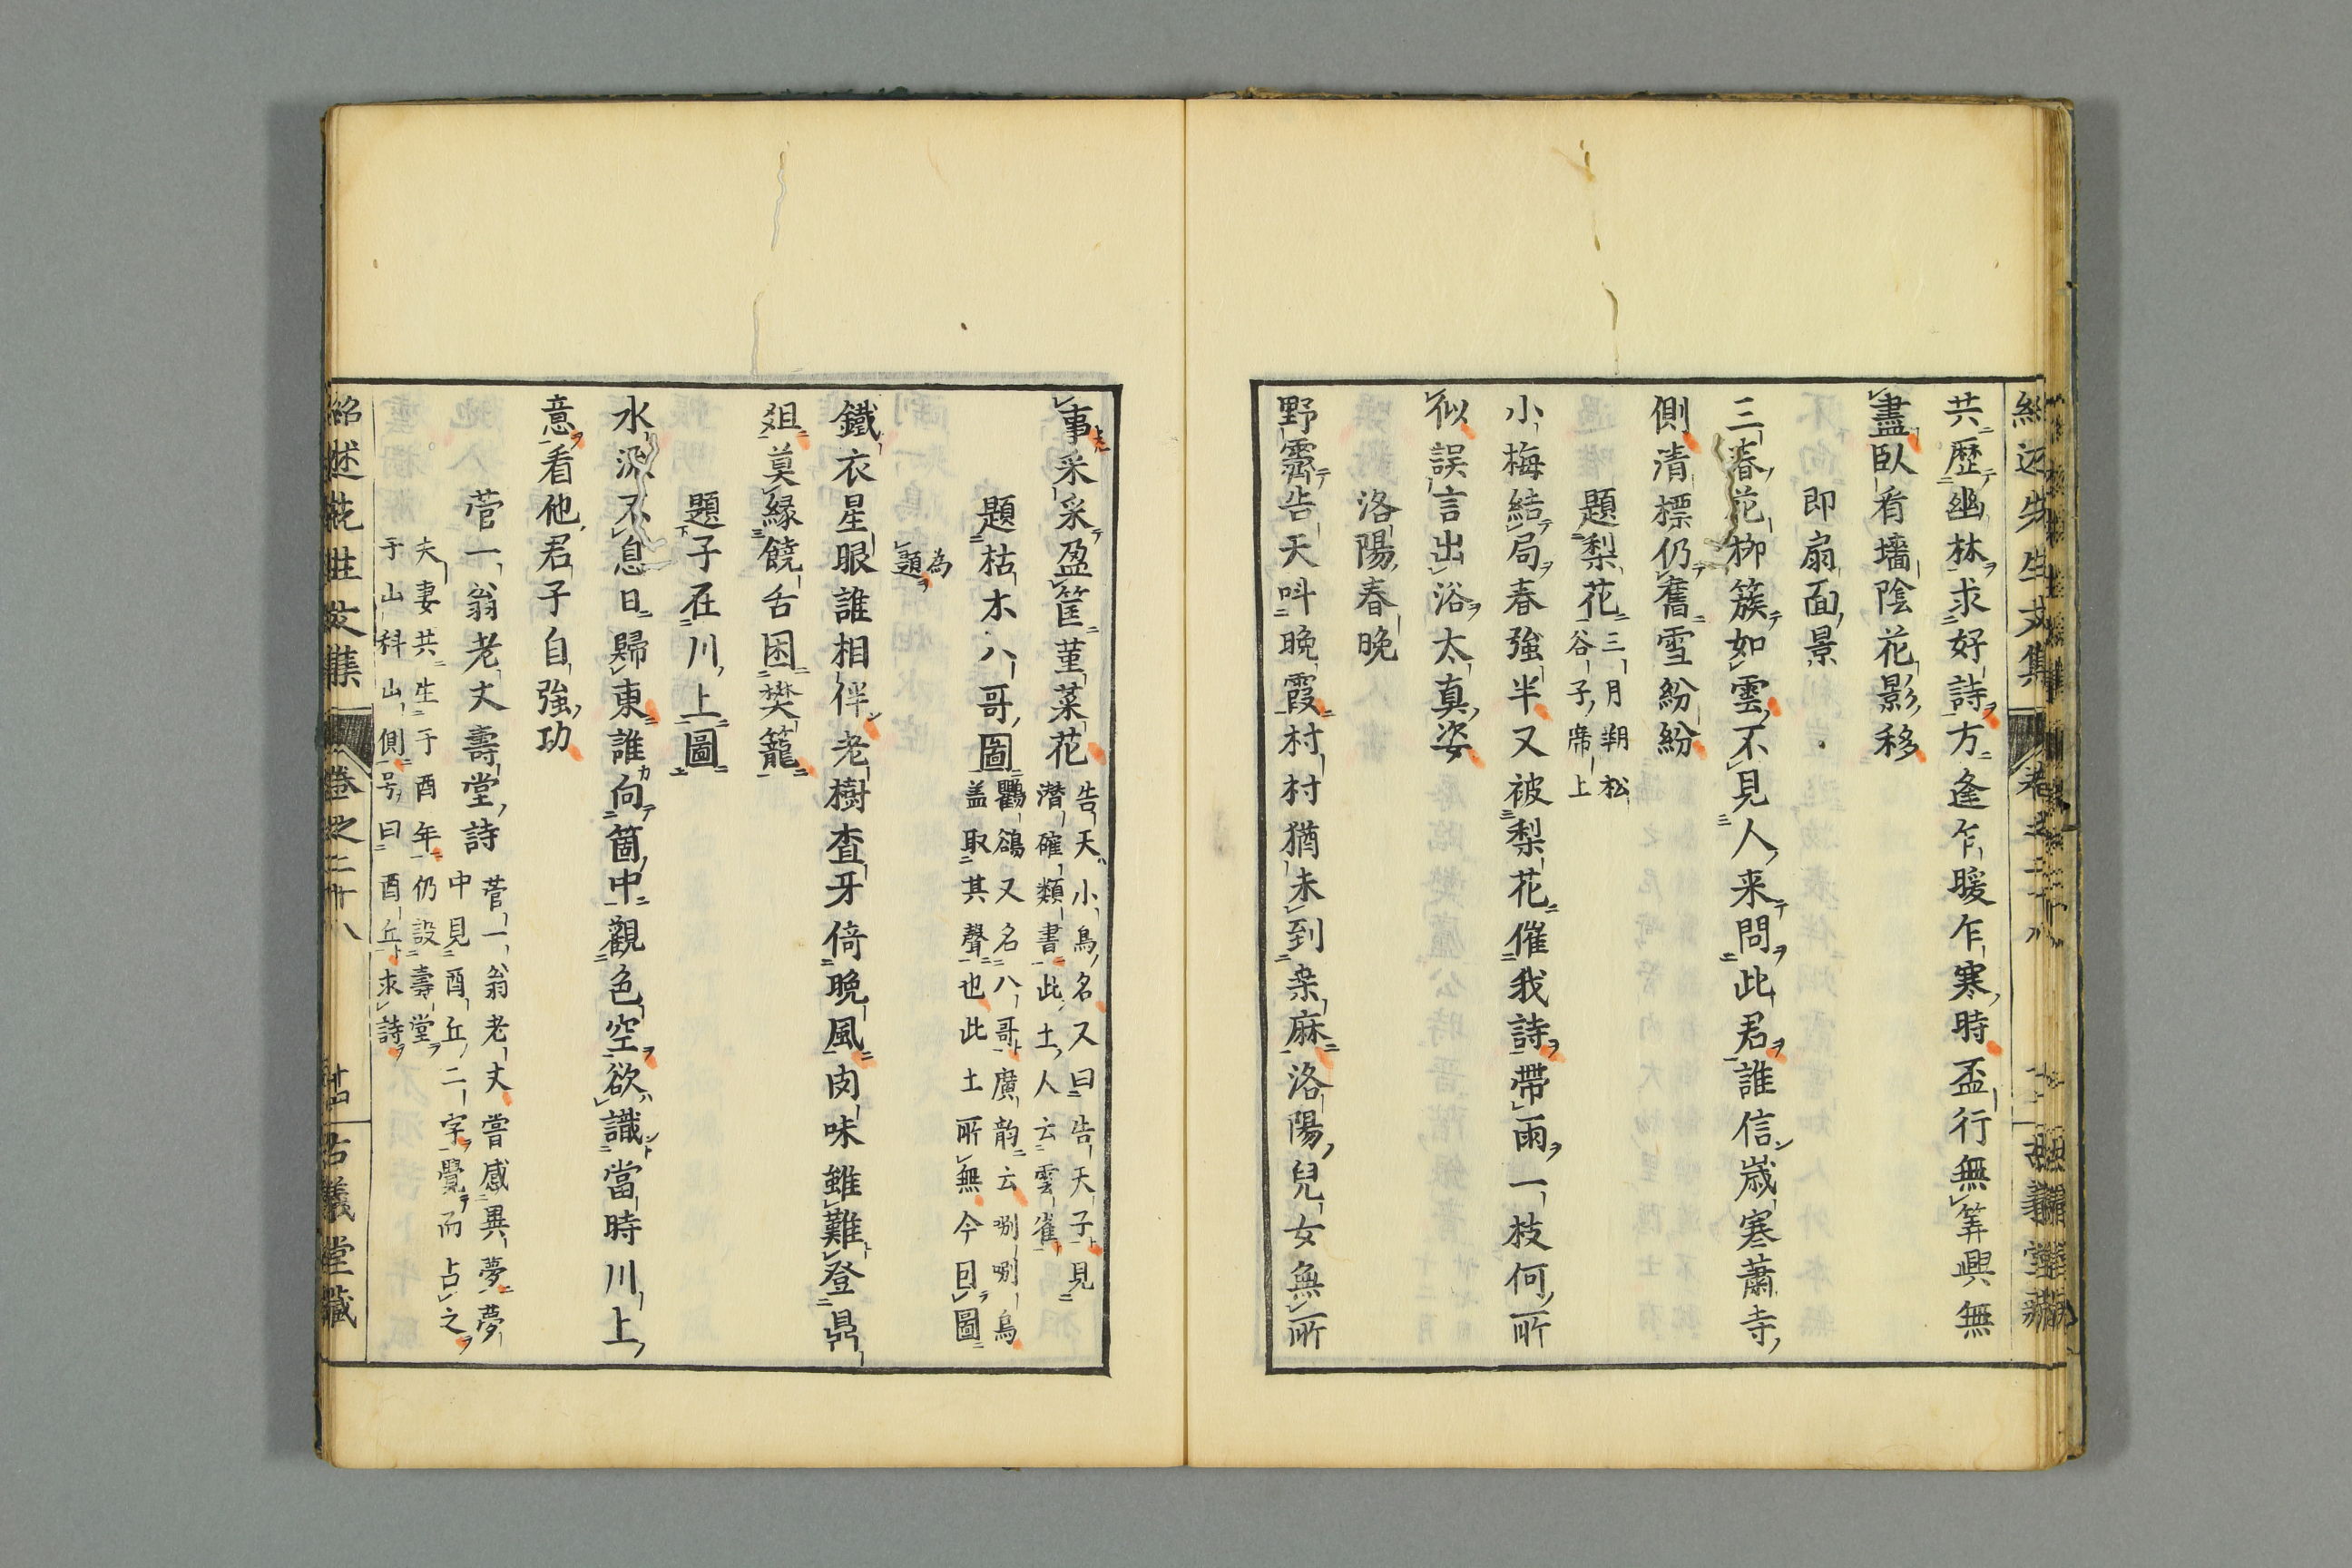 共歷幽林求好詩方逢乍暖乍寒時盃行無筭興無
盡臥看墻陰花影移
即扇面景
三春花柳簇如雲不見人来問此君誰信歳寒蕭寺
側清標仍舊雪紛紛
題梨花
三月朔松
谷子席上
小梅結局春強半又被梨花催我詩帶雨一枝何所
似誤言出浴太真姿
洛陽春晩
野霽告天呌晩霞村村猶未到桒麻洛陽兒女無所
事采采盈筐菫菜花
告天小鳥名又曰告天子見
潜確類書此土人云雲雀
題枯木八哥圖
鸜鵒又名八哥廣韵云唎唎鳥
盖取其聲也此土所無今因圖
為
題
鐵衣星眼誰相伴老樹査牙倚晩風肉味雖難登鼎
俎莫縁饒舌困樊籠
題子在川上圖
水流不息日歸東誰向箇中觀色空欲識當時川上
意看他君子自強功
菅一翁老丈壽堂詩
菅一翁老丈嘗感異夢夢
中見酉丘二字覺而占之
夫妻共生于酉年仍設壽堂
于山科山側号曰酉丘求詩
紹述先生文集
卷之二十八
古義堂藏